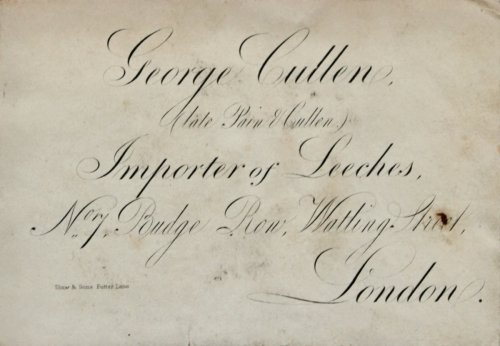 George Cullen,
(late Pain & Cullen.)
Importer of Leeches,
No. 7, Budge Row, Watling Street,
London.
Shaw & Sons Fetter Lane